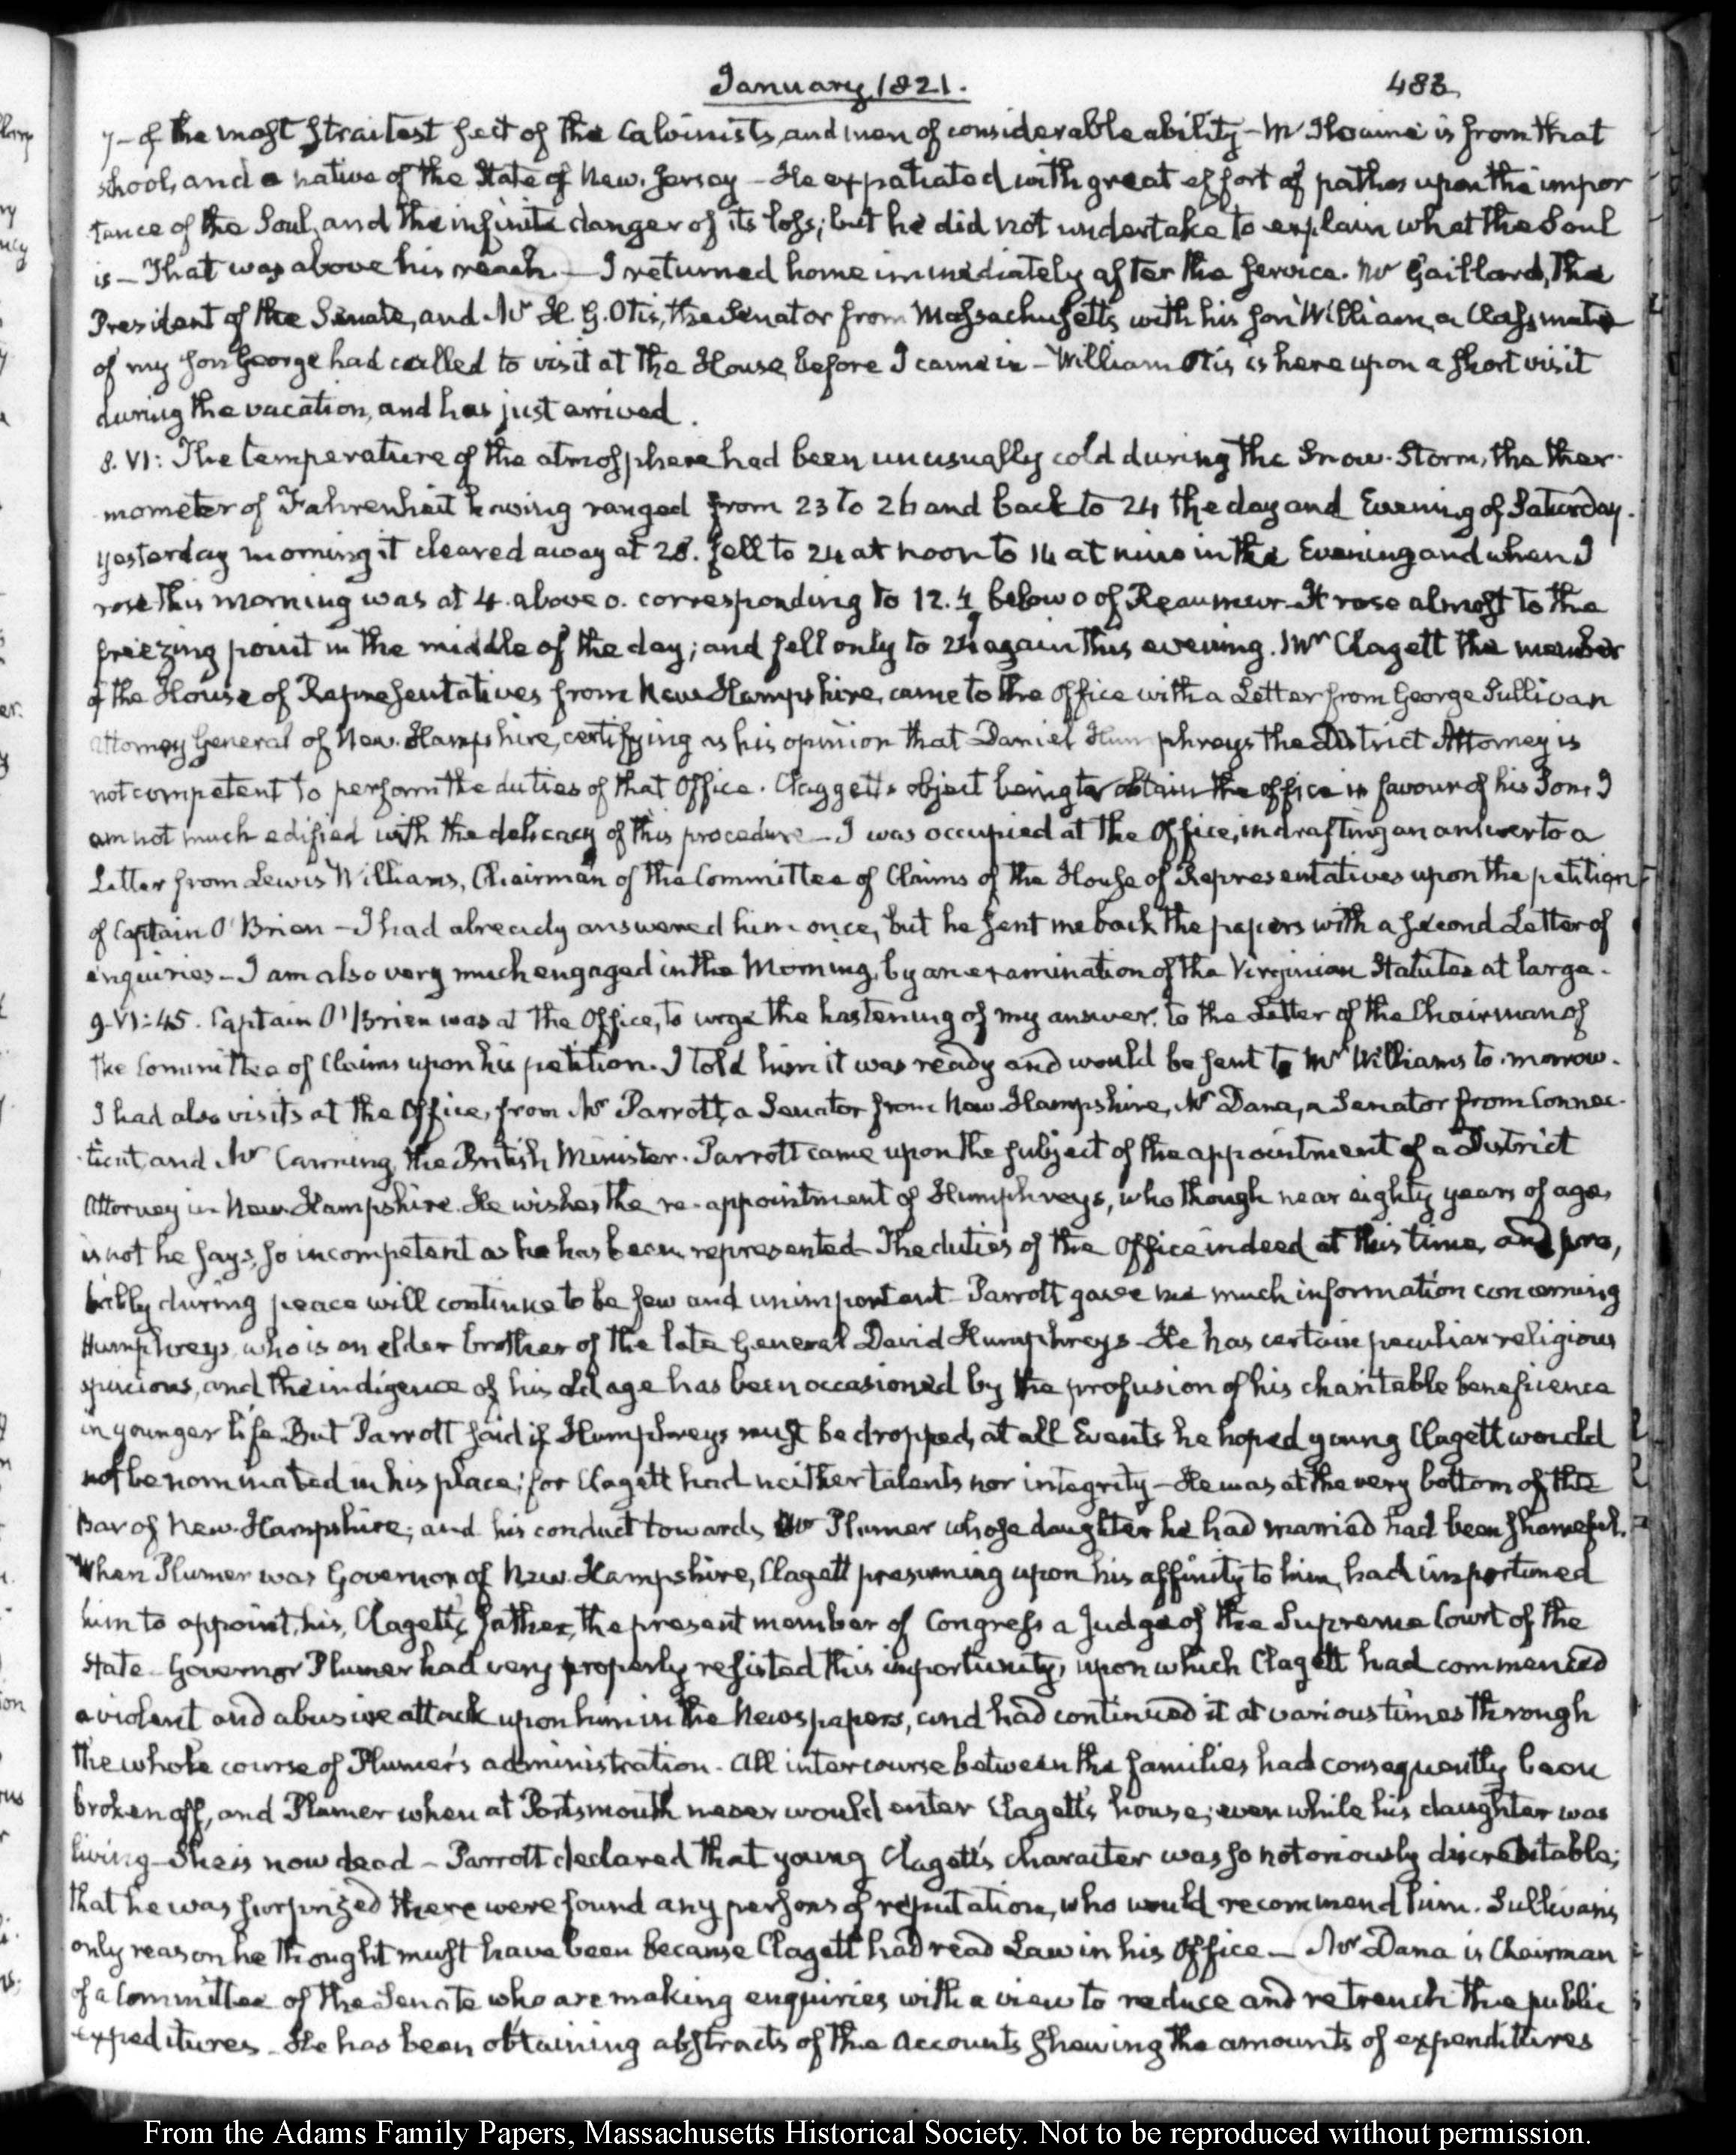 January 1821.
483
7— of the most straitest sect of the Calvinists, and men of considerable ability— Mr McIlvaine is from that
school, and a native of the State of New-Jersey— He expatiated with great effort of pathos upon the impor
tance of the Soul, and the infinite danger of its loss; but he did not undertake to explain what the Soul
is— That was above his reach.— I returned home immediately after the service. Mr Gaillard, the
President of the Senate, and Mr H. G. Otis, the Senator from Massachusetts with his Son William, a Classmate
of my Son George had called to visit at the House before I came in— William Otis is here upon a short visit
during the vacation, and has just arrived.
8. VI: The temperature of the atmosphere had been unusually cold during the Snow-Storm, the ther-
mometer of Fahrenheit having ranged from 23 to 26 and back to 24 the day and Evening of Saturday.
Yesterday morning it cleared away at 28. fell to 24 at noon to 14 at nine in the Evening and when I
rose this morning was at 4. above 0. corresponding to 12.4 below 0 of Reaumur. It rose almost to the
freezing point in the middle of the day; and fell only to 24 again this evening. Mr Clagett the member
of the House of Representatives from New-Hampshire, came to the Office with a Letter from George Sullivan
Attorney General of New-Hampshire, certifying as his opinion that Daniel Humphreys the District Attorney is
not competent to perform the duties of that Office. Claggett's object being to obtain the office in favour of his Son. I
am not much edified with the delicacy of this procedure— I was occupied at the Office, in drafting an answer to a
Letter from Lewis Williams, Chairman of the Committee of Claims of the House of Representatives upon the petition
of Captain O'Brien— I had already answered him once, but he sent me back the papers with a second Letter of
enquiries— I am also very much engaged in the Morning, by an examination of the Virginian Statutes at large.
9. VI:45. Captain O'Brien was at the Office, to urge the hastening of my answer, to the Letter of the Chairman of
the Committee of Claims upon his petition. I told him it was ready and would be sent to Mr Williams to-morrow.
I had also visits at the Office, from Mr Parrott, a Senator from New-Hampshire, Mr Dana, a Senator from Connec-
ticut, and Mr Canning, the British Minister. Parrott came upon the subject of the appointment of a District
Attorney in New-Hampshire. He wishes the re-appointment of Humphreys, who though near eighty years of age,
is not he says, so incompetent as he has been represented— The duties of the Office indeed at this time, and pro,
bably during peace will continue to be few and unimportant— Parrott gave me much information concerning
Humphreys, who is an elder brother of the late General David Humphreys— He has certain peculiar religious
opinions, and the indigence of his old age has been occasioned by the profusion of his charitable beneficence
in younger life. But Parrott said if Humphreys must be dropped, at all Events he hoped young Clagett would
not be nominated in his place; for Clagett had neither talents nor integrity— He was at the very bottom of the
Bar of New-Hampshire; and his conduct towards Mr Plumer whose daughter he had married had been shameful.
When Plumer was Governor of New-Hampshire, Clagett presuming upon his affinity to him, had importuned
him to appoint, his, Clagett's father, the present member of Congress a Judge of the Supreme Court of the
State— Governor Plumer had very properly resisted this importunity, upon which Clagett had commenced
a violent and abusive attack upon him in the Newspapers, and had continued it at various times through
the whole course of Plumer's administration. All intercourse between the families had consequently been
broken off, and Plumer when at Portsmouth never would enter Clagett's house; even while his daughter was
living— She is now dead— Parrott declared that young Clagett's character was so notoriously discreditable;
that he was surprized there were found any persons of reputation, who would recommend him. Sullivan's
only reason he thought must have been because Clagett had read Law in his Office— Mr Dana is Chairman
of a Committee of the Senate who are making enquiries with a view to reduce and retrench the public
expeditures. He has been obtaining abstracts of the Accounts shewing the amounts of expenditures
From the Adams Family Papers, Massachusetts Historical Society. Not to be reproduced without permission.